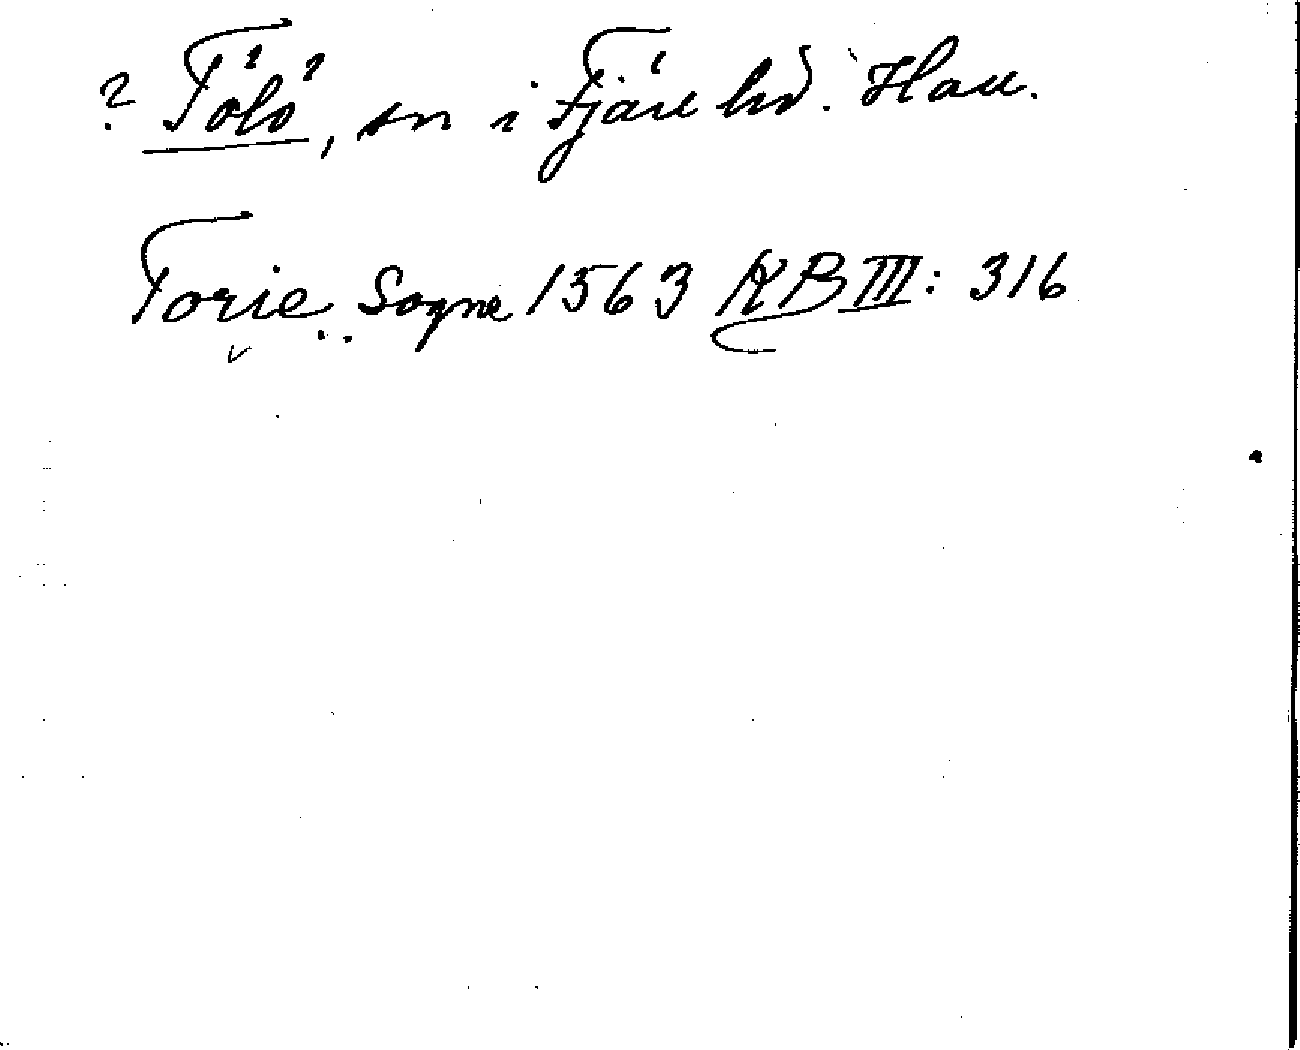 ? Tölö, sn i Fjäre hd. Hall.
Torie Sogne 1563 KB III: 316